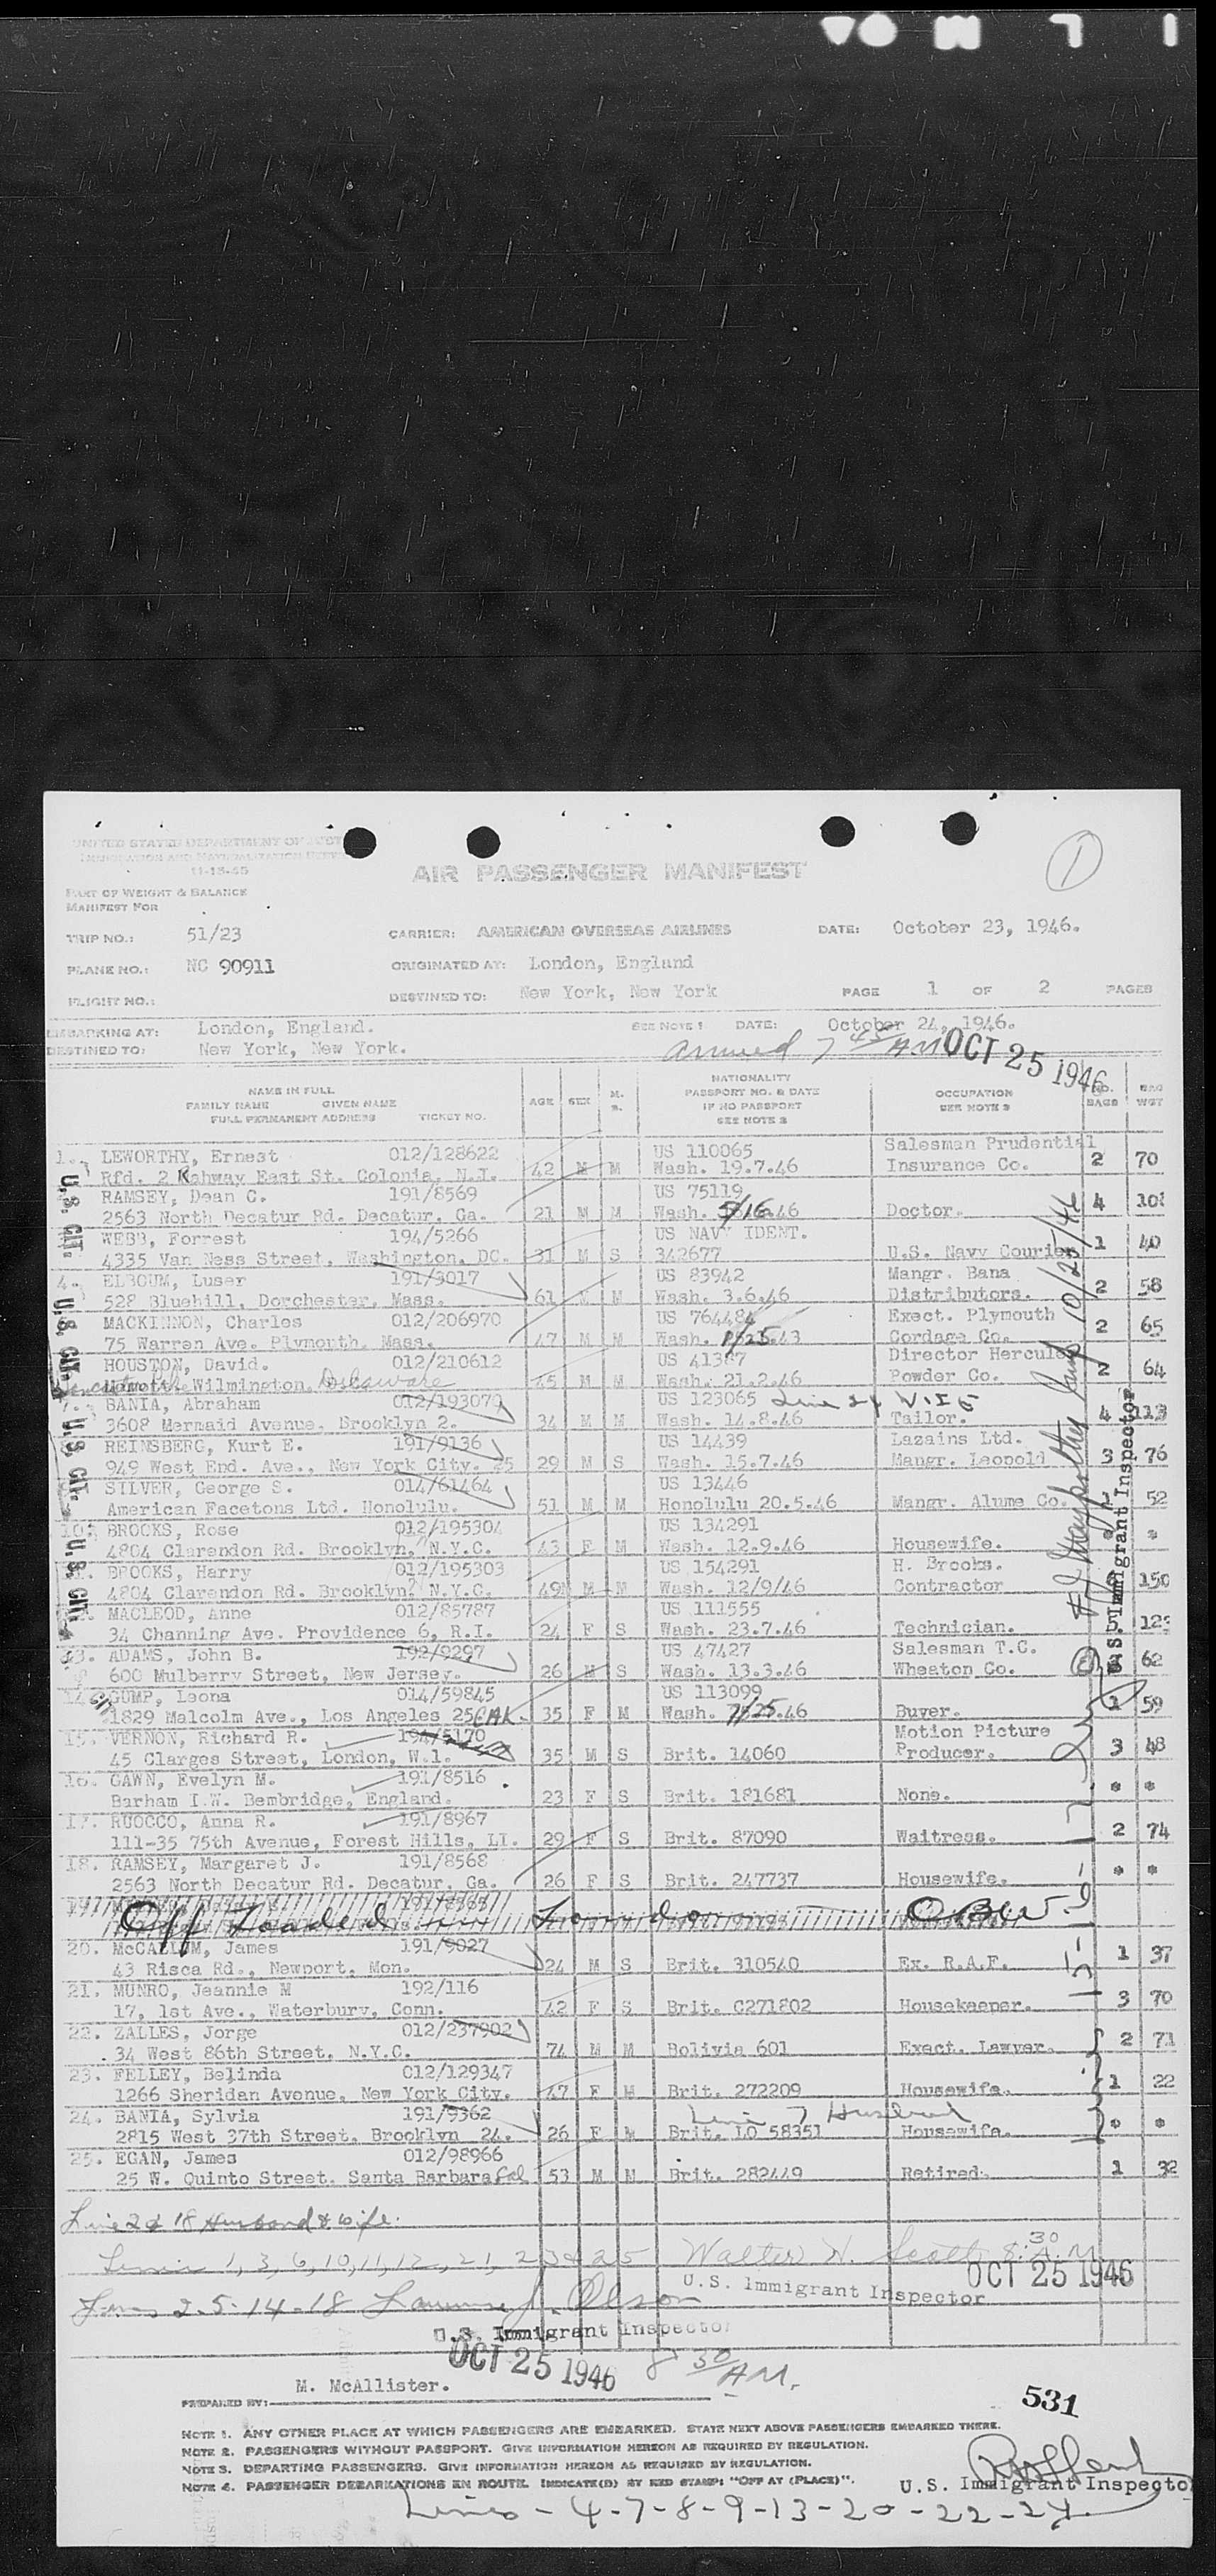 UNITED STATES DEPARTMENT OF
IMMIGRATION AND NATURALIZATION
11-15-45
AIR PASSENGER MANIFEST
1
PART OF WEIGHT & BALANCE
MANIFEST FOR
TRIP NO.: 51/23 CARRIER: AMERICAN OVERSEAS AIRLINES DATE: October 23, 1946.
PLANE NO.: NC 90911 ORIGINATED AT: London, England
FLIGHT NO.: DESTINED TO: New York, New York PAGE 1 OF 2 PAGES
EMBARKING AT: London, England. SEE NOTE 1 DATE: October 24, 1946.
DESTINED TO: New York, New York. arrived 7 45 AM OCT 25 1946
NAME IN FULL
FAMILY NAME GIVEN NAME
FULL PERMANENT ADDRESS TICKET NO. AGE SEX M. S. NATIONALITY PASSPORT NO. & DATE IF NO PASSPORT SEE NOTE 2 OCCUPATION SEE NOTE 3 NO. BAGS BAG WGT
1. LEWORTHY, Ernest 012/128622 US 110065 Salesman Prudential
Rfd. 2 Rahway East St. Colonia, N.J. 42 M M Wash. 19.7.46 Insurance Co. 2 70
RAMSEY, Dean C. 191/8569 US 75119
2563 North Decatur Rd. Decatur, Ga. 21 M M Wash. 5/16.46 Doctor. 4
WEBB, Forrest 194/5266 US NAVY IDENT.
4335 Van Ness Street, Washington, DC. 31 M S 342677 U.S. Navy Courier 1 40
4. ELBOUM, Luser 191/3017 US 83942 Mangr. Bana
528 Bluehill, Dorchester, Mass. 61 M M Wash. 3.6.46 Distributors. 2 58
MACKINNON, Charles 012/206970 US 764484 Exect. Plymouth
75 Warren Ave. Plymouth, Mass. 47 M M Wash. Cordage Co. 2 65
HOUSTON, David. 012/210612 US 41387 Director Hercules
Wilmington, Delaware 45 M M Wash. 21.2.46 Powder Co. 2 64
BANIA, Abraham 012/193079 US 123065 Line 24 W.I.F
3608 Mermaid Avenue. Brooklyn 2. 34 M M Wash. 14.8.46 Tailor. 4 113
REINSBERG, Kurt E. 191/9136 US 14439 Lazains Ltd.
949 West End. Ave., New York City. 25 29 M S Wash. 15.7.46 Mangr. Leopold 3 76
SILVER, George S. 014/61464 US 13446
American Facetons Ltd. Honolulu. 51 M M Honolulu 20.5.46 Mangr. Alume Co. 52
10. BROOKS, Rose 012/195304 US 134291
4804 Clarendon Rd. Brooklyn, N.Y.C. 43 F M Wash. 12.9.46 Housewife. * *
BROOKS, Harry 012/195303 US 154291 H. Brooks.
4804 Clarendon Rd. Brooklyn, N.Y.C. 49 M M Wash. 12/9/46 Contractor 150
MACLEOD, Anne 012/85787 US 111555
34 Channing Ave. Providence 6, R.I. 24 F S Wash. 23.7.46 Technician.
13. ADAMS, John B. 192/9297 US 47427 Salesman T.C.
600 Mulberry Street, New Jersey. 26 M S Wash. 13.3.46 Wheaton Co. 62
14. GUMP, Leona 014/59845 US 113099
1829 Malcolm Ave., Los Angeles 25 CAL. 35 F M Wash. 7/25.46 Buyer. 1 59
15. VERNON, Richard R. 194/5170 Motion Picture
45 Clarges Street, London, W.1. 35 M S Brit. 14060 Producer. 3 48
16. GAWN, Evelyn M. 191/8516
Barham I.W. Bembridge, England. 23 F S Brit. 181681 None. * *
17. RUOCCO, Anna R. 191/8967
111-35 75th Avenue, Forest Hills, LI. 29 F S Brit. 87090 Waitress. 2 74
18. RAMSEY, Margaret J. 191/8568
2563 North Decatur Rd. Decatur, Ga. 26 F S Brit. 247737 Housewife. * *
19. Off Loaded London
20. McCALLUM, James 191/9027
43 Risca Rd., Newport, Mon. 24 M S Brit. 310540 Ex. R.A.F. 1 37
21. MUNRO, Jeannie M 192/116
17, 1st Ave., Waterbury, Conn. 42 F S Brit. C271802 Housekeeper. 3 70
22. ZALLES, Jorge 012/237902
34 West 86th Street, N.Y.C. 74 M M Bolivia 601 Exect. Lawyer. 2 71
23. FELLEY, Belinda 012/129347
1266 Sheridan Avenue, New York City. 47 F M Brit. 272209 Housewife. 1 22
24. BANIA, Sylvia 191/9362 Line 7 Husband
2815 West 37th Street, Brooklyn 24. 26 F M Brit. LO 58351 Housewife. * *
25. EGAN, James 012/98966
25 W. Quinto Street. Santa Barbara Cal 53 M M Brit. 282449 Retired. 1 32
U.S. CIT.
U.S. CIT.
U.S. CIT.
U.S. CIT.
10/25/46
U.S. Immigrant Inspector
Line 2 & 18 Husband & Wife.
Lines 1, 3, 6, 10, 11, 12, 21, 23 & 25 Walter H. Scott 8:30 A.M
U.S. Immigrant Inspector OCT 25 1946
Lines 2-5-14-18 Lawrence J. Olson
U.S. Immigrant Inspector
OCT 25 1946 8 30 AM.
M. McAllister.
PREPARED BY:
531
NOTE 1. ANY OTHER PLACE AT WHICH PASSENGERS ARE EMBARKED. STATE NEXT ABOVE PASSENGERS EMBARKED THERE.
NOTE 2. PASSENGERS WITHOUT PASSPORT. GIVE INFORMATION HEREON AS REQUIRED BY REGULATION.
NOTE 3. DEPARTING PASSENGERS. GIVE INFORMATION HEREON AS REQUIRED BY REGULATION.
NOTE 4. PASSENGER DEBARKATIONS EN ROUTE. INDICATE(D) BY RED STAMP: "OFF AT (PLACE)".
U.S. Immigrant Inspector
Lines - 4-7-8-9-13-20-22-24